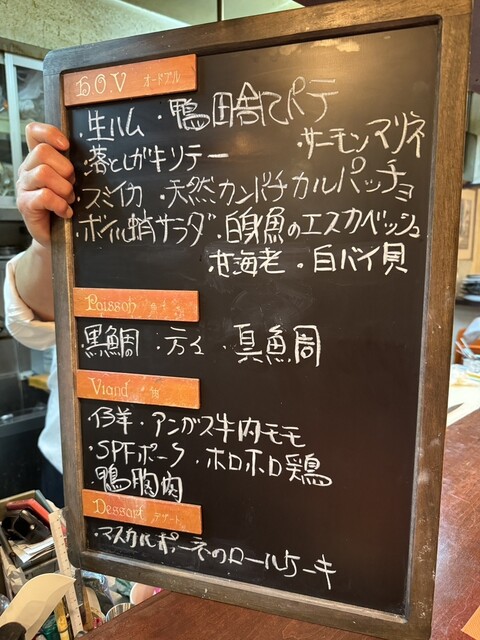 h O.V オードブル
・生ハム ・鴨田舎パテ
・落とし ソテー ・サーモンマリネ
・スミイカ ・天然カンパチカルパッチョ
・ボイル蛸サラダ ・白身魚のエスカベッシュ
甘海老 ・白バイ貝
Poisson
・黒鯛 ・真魚
Viand 肉
・仔羊 ・アンガス牛内モモ
・SPFポーク ・ホロホロ鶏
・鴨胸肉
Dessert デザート
・マスカルポーネのロールケーキ